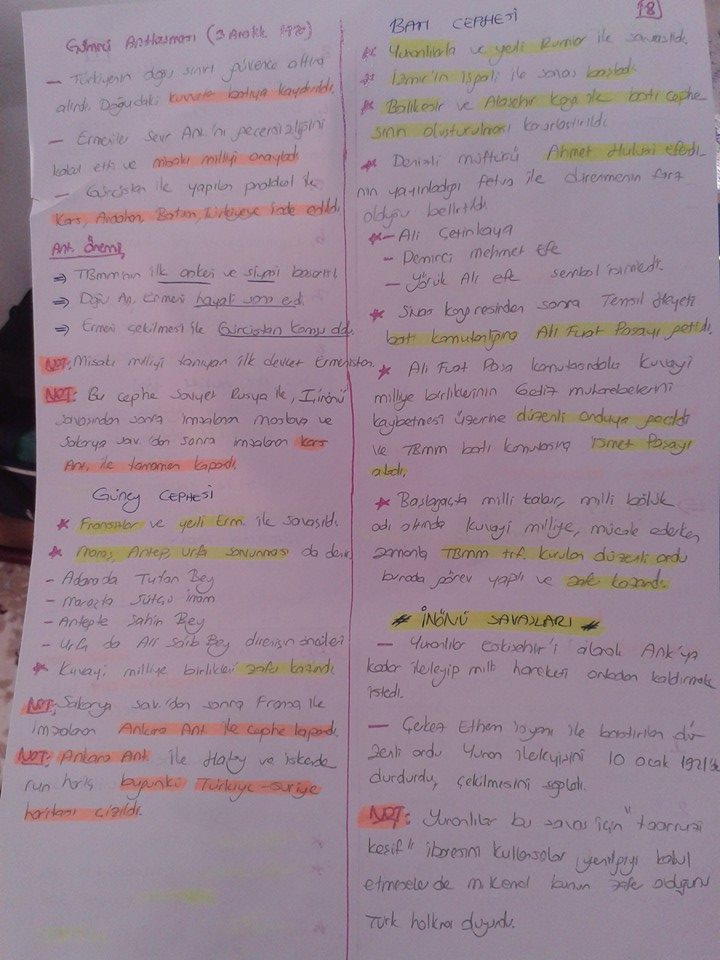 Gümrü Antlaşması (3 Aralık 1920)
— Türkiyenin doğu sınırı güvence altına
alındı. Doğudaki kuvvetler batıya kaydırıldı.
— Ermeniler Sevr Ant.'nı geçersizliğini
kabul etti ve misakı milliyi onayladı
— Gürcistan ile yapılan protokol ile
Kars, Ardahan, Batum, Türkiyeye iade edildi.
Ant. Önemi;
⇒ TBmm'nin ilk askeri ve siyasi başarısı
⇒ Doğu An. Ermeni hayali sona erdi.
⇒ Ermeni çekilmesi ile Gürcistan komşu oldu.
NOT: Misakı milliyi tanıyan ilk devlet Ermenistan.
NOT: Bu cephe Sovyet Rusya ile, I.inönü
savaşından sonra imzalanan moskova ve
Sakarya sav.'dan sonra imzalanan kars
Ant. ile tamamen kapandı.
GÜNEY CEPHESİ
* Fransızlar ve yerli Erm. ile savaşıldı.
* maraş, Antep, Urfa savunması da denir
- Adanada Tufan Bey
- maraşta Sütçü imam
- Antepte Şahin Bey
- Urfa da Ali Saib Bey direnişin öncüleri
* Kuvayi milliye birlikleri zafer kazandı.
NOT: Sakarya sav.'dan sonra Fransa ile
imzalanan Ankara Ant. ile cephe kapandı.
NOT: Ankara Ant. ile Hatay ve iskende
run hariç bugünkü Türkiye-suriye
haritası çizildi.
BATI CEPHESİ
18
* Yunanlılarla ve yerli Rumlar ile savaşıldı.
* İzmir'in işgali ile savaş başladı.
* Balıkesir ve Alaşehir Kong. ile batı cephe
sinin oluşturulması kararlaştırıldı.
* Denizli müftüsü Ahmet Hulusi efendi-
nin yayınladığı fetva ile direnmenin farz
olduğu belirtildi.
* - Ali Çetinkaya
- Demirci mehmet Efe
- Yörük Ali efe sembol isimledi.
* Sivas kongresinden sonra Temsil Heyeti
batı komutanlığına Ali Fuat Paşayı getirdi.
* Ali Fuat Paşa komutasındaki Kuvayi
milliye birliklerinin Gediz muharebelerini
kaybetmesi üzerine düzenli orduya geçildi
ve TBmm batı komutasına ismet Paşayı
atadı.
* Başlangıçta milli tabur, milli bölük
adı altında kuvayi milliye, mücale ederken
zamanla TBmm trf. kurulan düzenli ordu
burada görev yaptı ve zafer kazandı.
# İNÖNÜ SAVAŞLARI #
— Yunanlılar Eskişehir'i alarak Ank'ya
kadar ilerleyip milli hareketi ortadan kaldırmak
istedi.
— Çerkez Ethem isyanı ile bastırılan dü-
zenli ordu Yunan ilerleyişini 10 ocak 1921'de
durdurdu, çekilmesini sağladı.
NOT: Yunanlılar bu savaş için "taarruzi
keşif" ibaresini kullansalar, yenilgiyi kabul
etmeselerde m.kemal bunun zafer olduğunu
Türk halkına duyurdu.